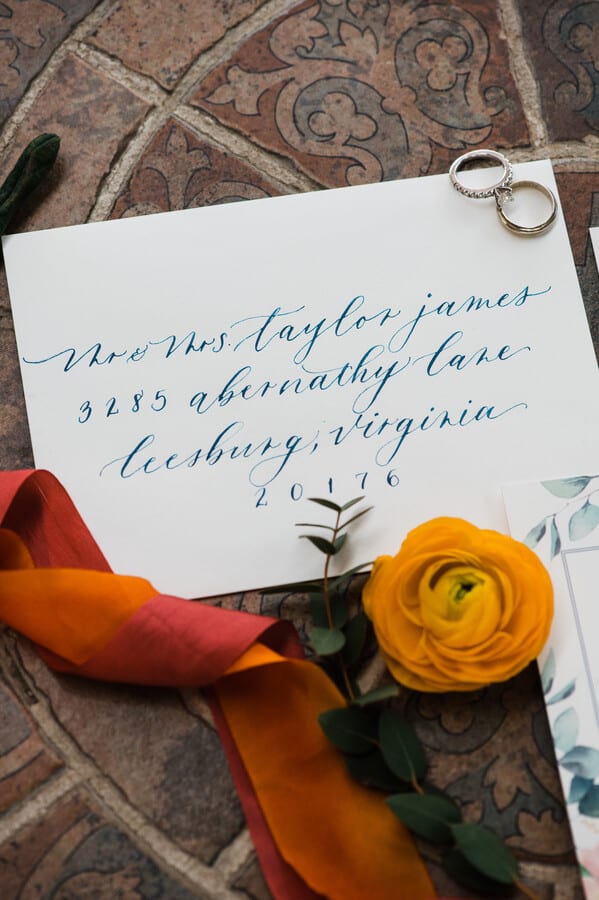 Mr & Mrs. taylor james
3285 abernathy lane
leesburg, virginia
20176